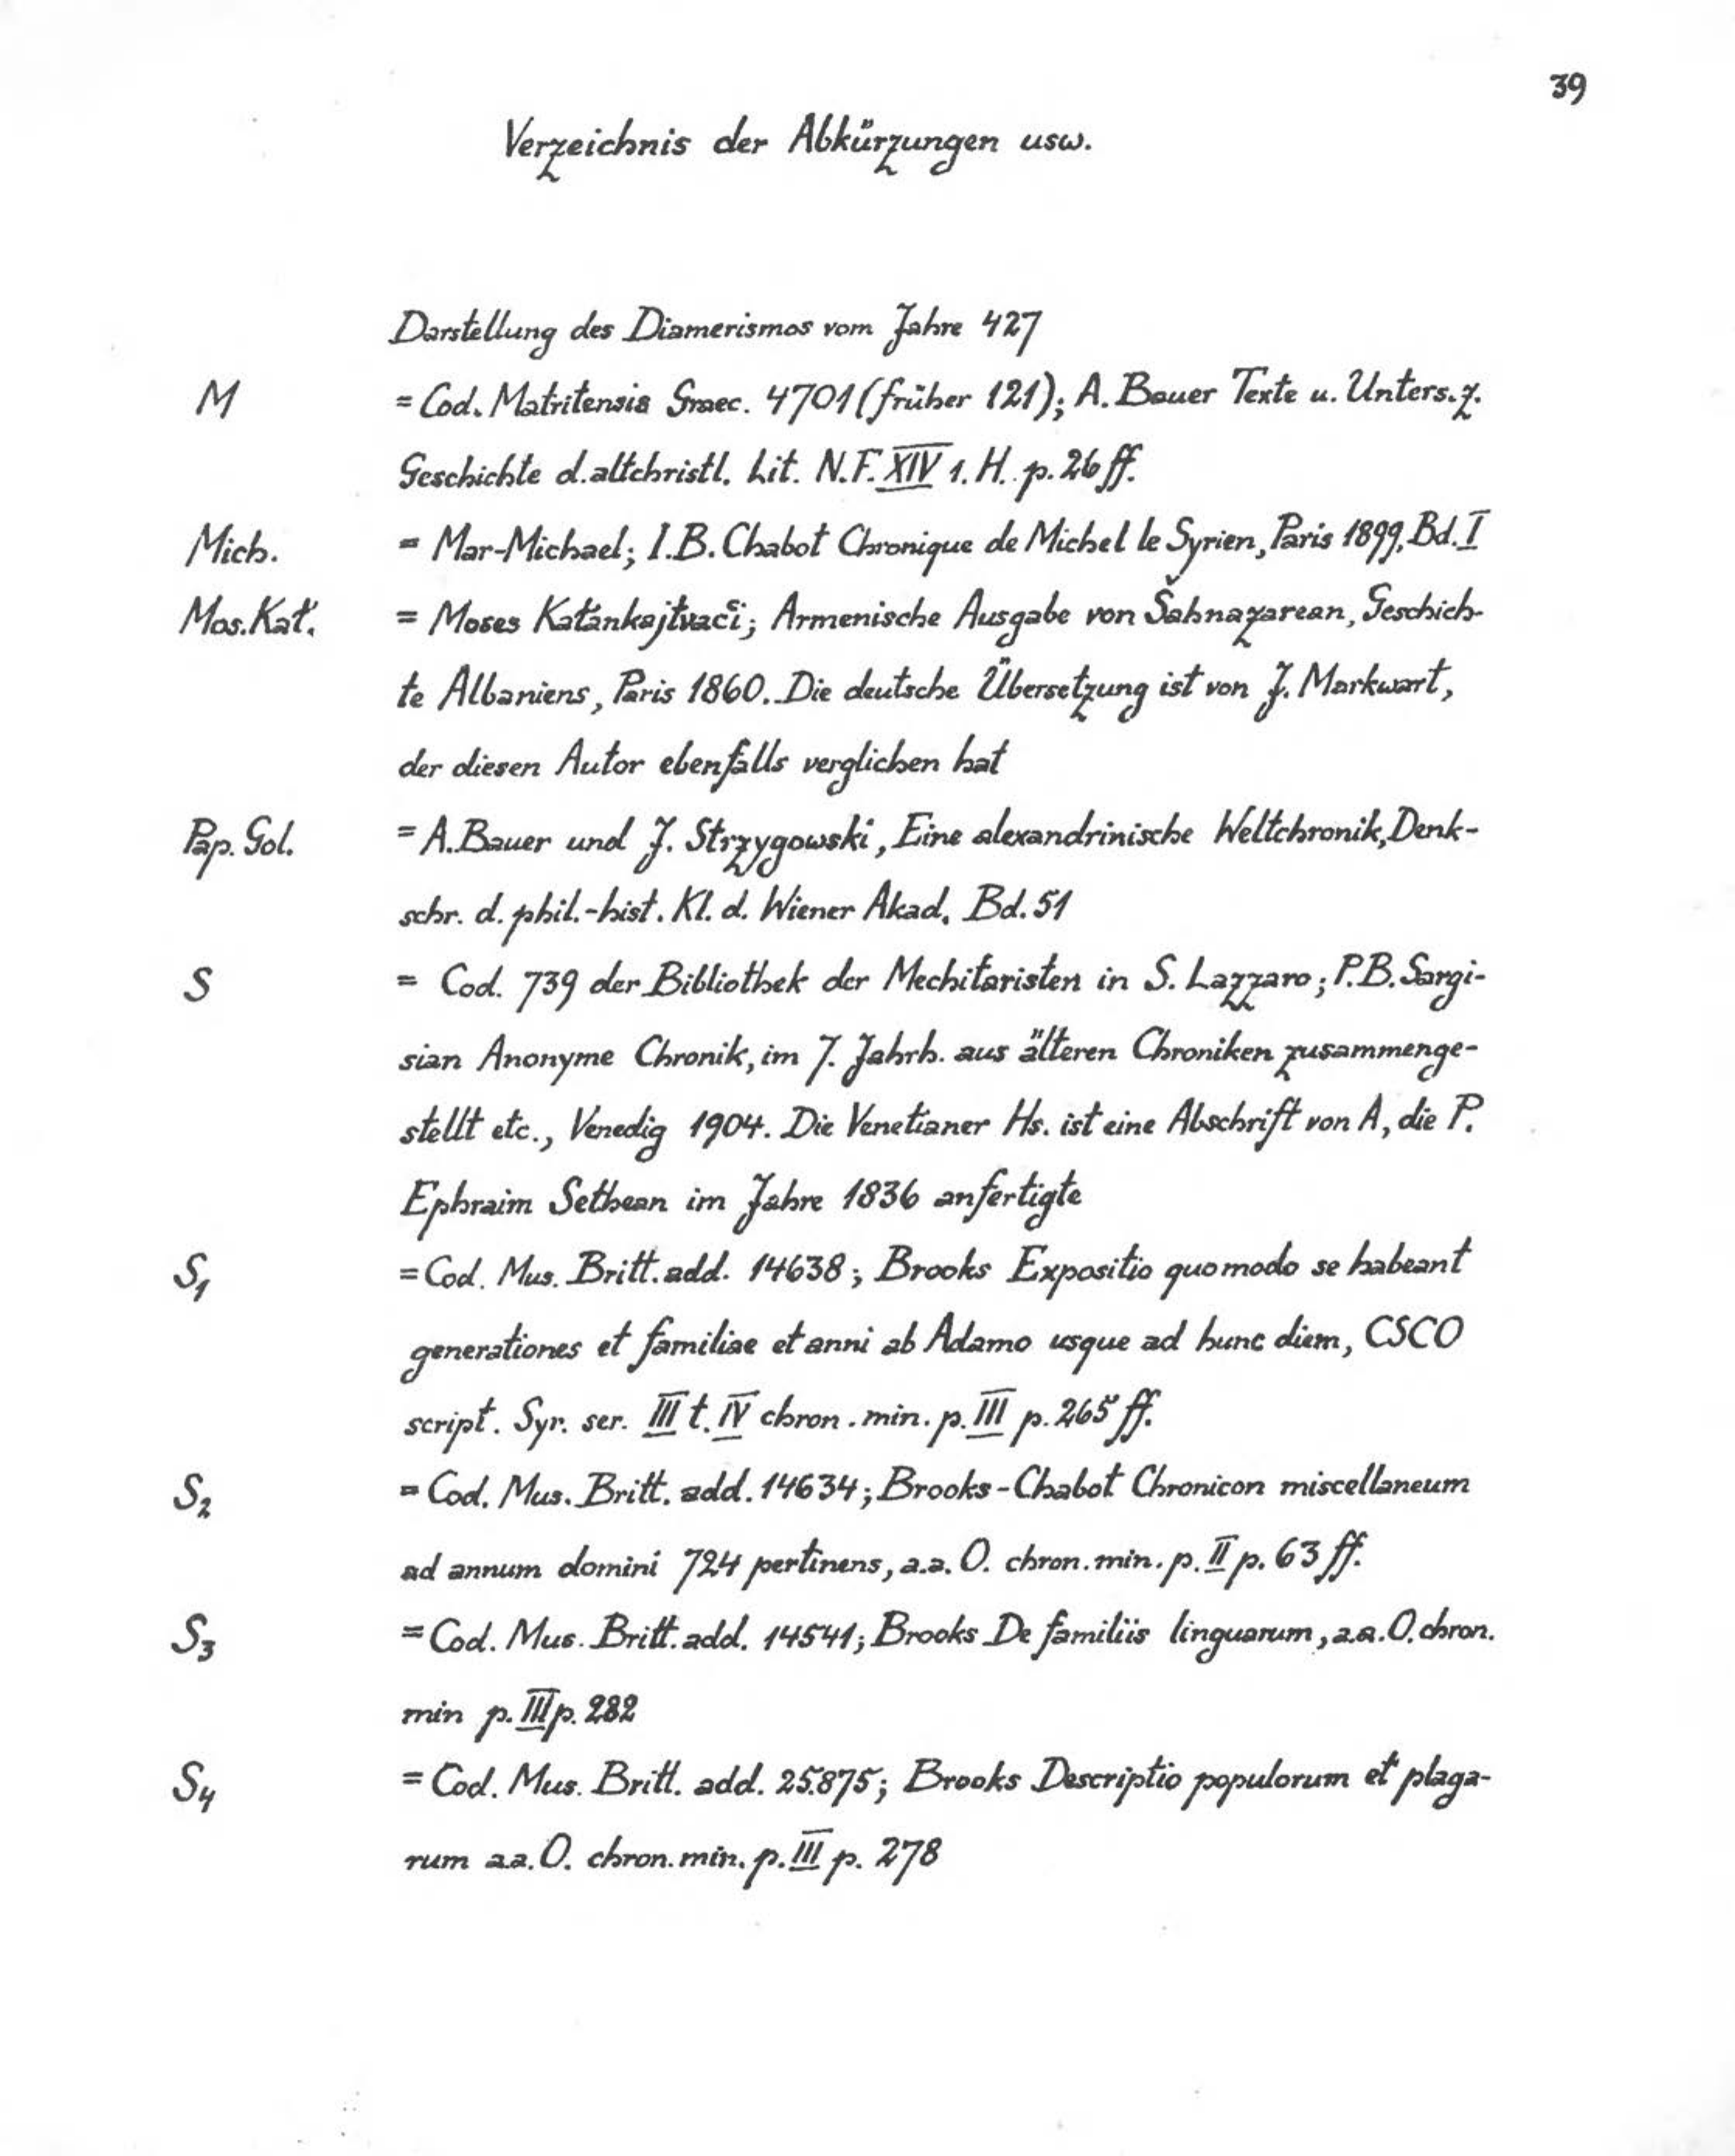 39
Verzeichnis der Abkürzungen usw.
Darstellung des Diamerismos vom Jahre 427
M = Cod. Matritensis Graec. 4701 (früher 121); A. Bauer Texte u. Unters. z.
Geschichte d. altchristl. Lit. N.F. XIV 1. H. p. 26 ff.
Mich. = Mar-Michael; I.B. Chabot Chronique de Michel le Syrien, Paris 1899, Bd. I
Mos. Kał. = Moses Kałankajtvac̔i; Armenische Ausgabe von Šahnazarean, Geschich-
te Albaniens, Paris 1860. Die deutsche Übersetzung ist von J. Markwart,
der diesen Autor ebenfalls verglichen hat
Pap. Gol. = A. Bauer und J. Strzygowski, Eine alexandrinische Weltchronik, Denk-
schr. d. phil.-hist. Kl. d. Wiener Akad. Bd. 51
S = Cod. 739 der Bibliothek der Mechitaristen in S. Lazzaro; P.B. Sargi-
sian Anonyme Chronik, im 7. Jahrh. aus älteren Chroniken zusammenge-
stellt etc., Venedig 1904. Die Venetianer Hs. ist eine Abschrift von A, die P.
Ephraim Sethean im Jahre 1836 anfertigte
S₁ = Cod. Mus. Britt. add. 14638; Brooks Expositio quomodo se habeant
generationes et familiae et anni ab Adamo usque ad hunc diem, CSCO
script. Syr. ser. III t. IV chron. min. p. III p. 265 ff.
S₂ = Cod. Mus. Britt. add. 14634; Brooks-Chabot Chronicon miscellaneum
ad annum domini 724 pertinens, a.a.O. chron. min. p. II p. 63 ff.
S₃ = Cod. Mus. Britt. add. 14541; Brooks De familiis linguarum, a.a.O. chron.
min p. III p. 282
S₄ = Cod. Mus. Britt. add. 25.875; Brooks Descriptio populorum et plaga-
rum a.a.O. chron. min. p. III p. 278